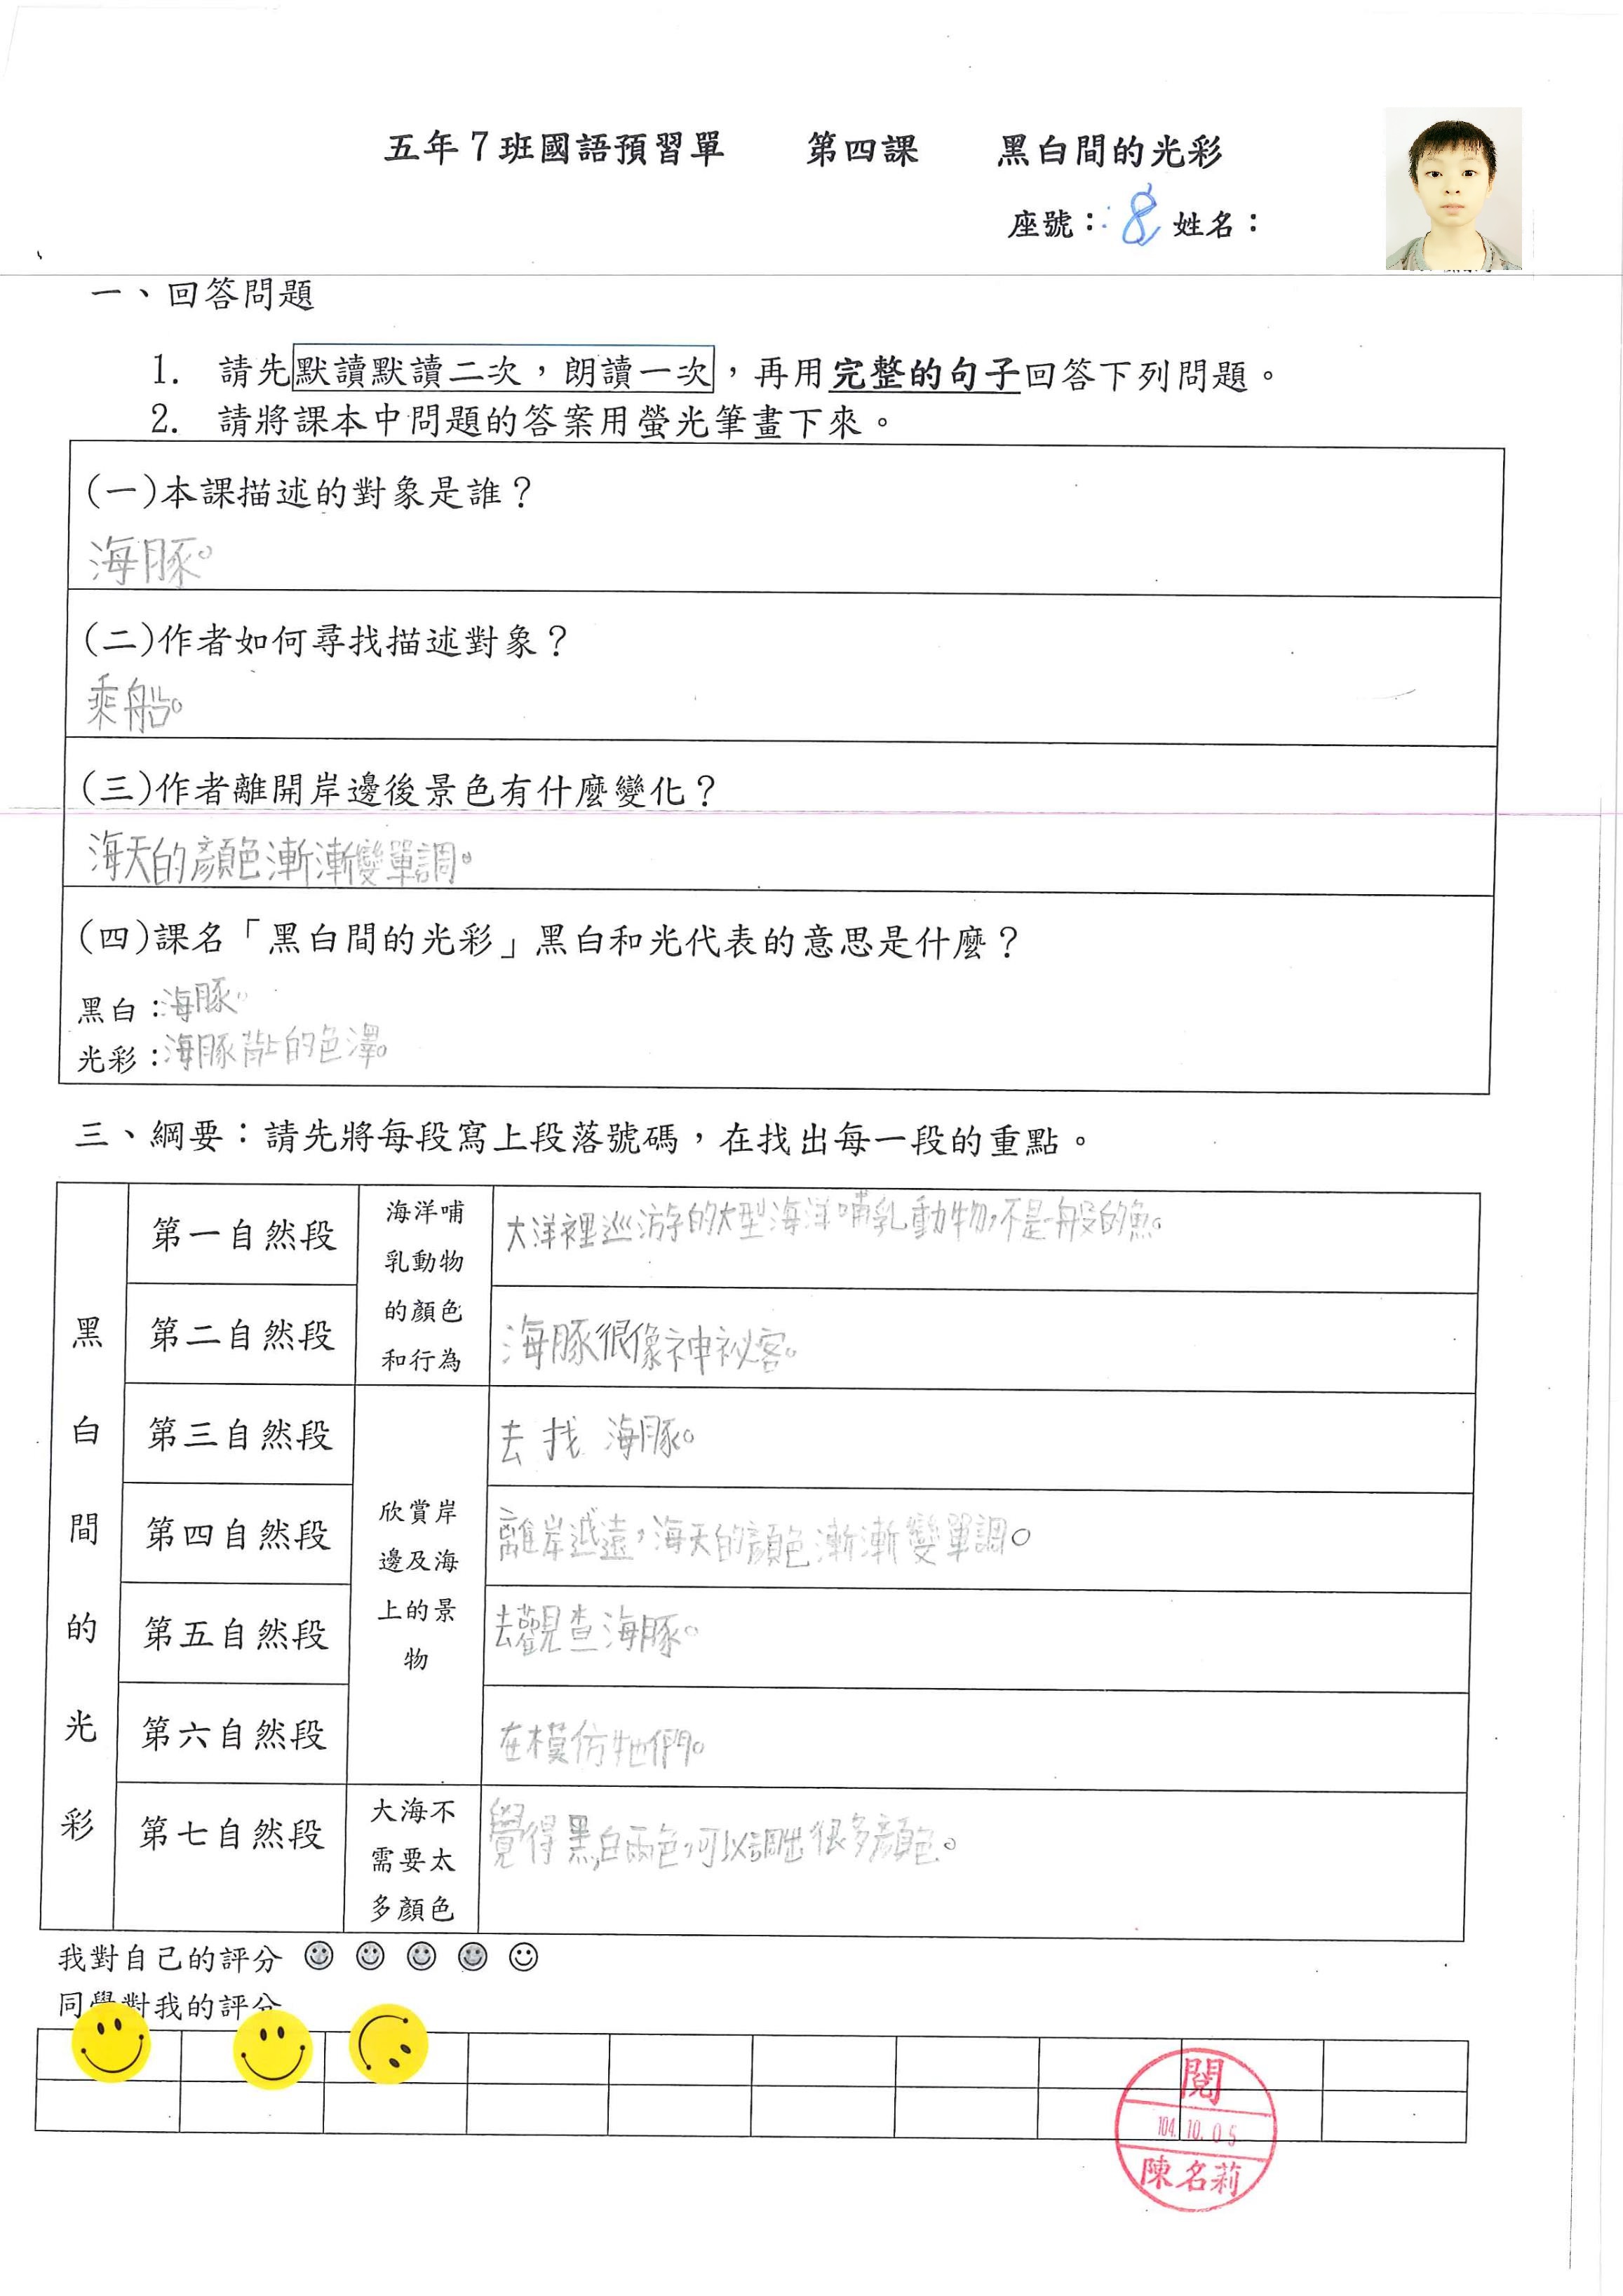 五年7班國語預習單 第四課 黑白間的光彩
座號：8 姓名：
一、回答問題
1. 請先默讀默讀二次，朗讀一次，再用完整的句子回答下列問題。
2. 請將課本中問題的答案用螢光筆畫下來。
(一)本課描述的對象是誰？
海豚。
(二)作者如何尋找描述對象？
乘船。
(三)作者離開岸邊後景色有什麼變化？
海天的顏色漸漸變單調。
(四)課名「黑白間的光彩」黑白和光代表的意思是什麼？
黑白：海豚。
光彩：海豚背上的色澤。
三、綱要：請先將每段寫上段落號碼，在找出每一段的重點。
黑白間的光彩
第一自然段
海洋哺乳動物的顏色和行為
大洋裡巡游的大型海洋哺乳動物，不是一般的魚。
第二自然段
海豚很像神祕客。
第三自然段
欣賞岸邊及海上的景物
去找海豚。
第四自然段
離岸越遠，海天的顏色漸漸變單調。
第五自然段
去觀查海豚。
第六自然段
在模仿牠們。
第七自然段
大海不需要太多顏色
覺得黑,白兩色，可以調出很多顏色。
我對自己的評分
同學對我的評分
閱
104.10.05
陳名莉